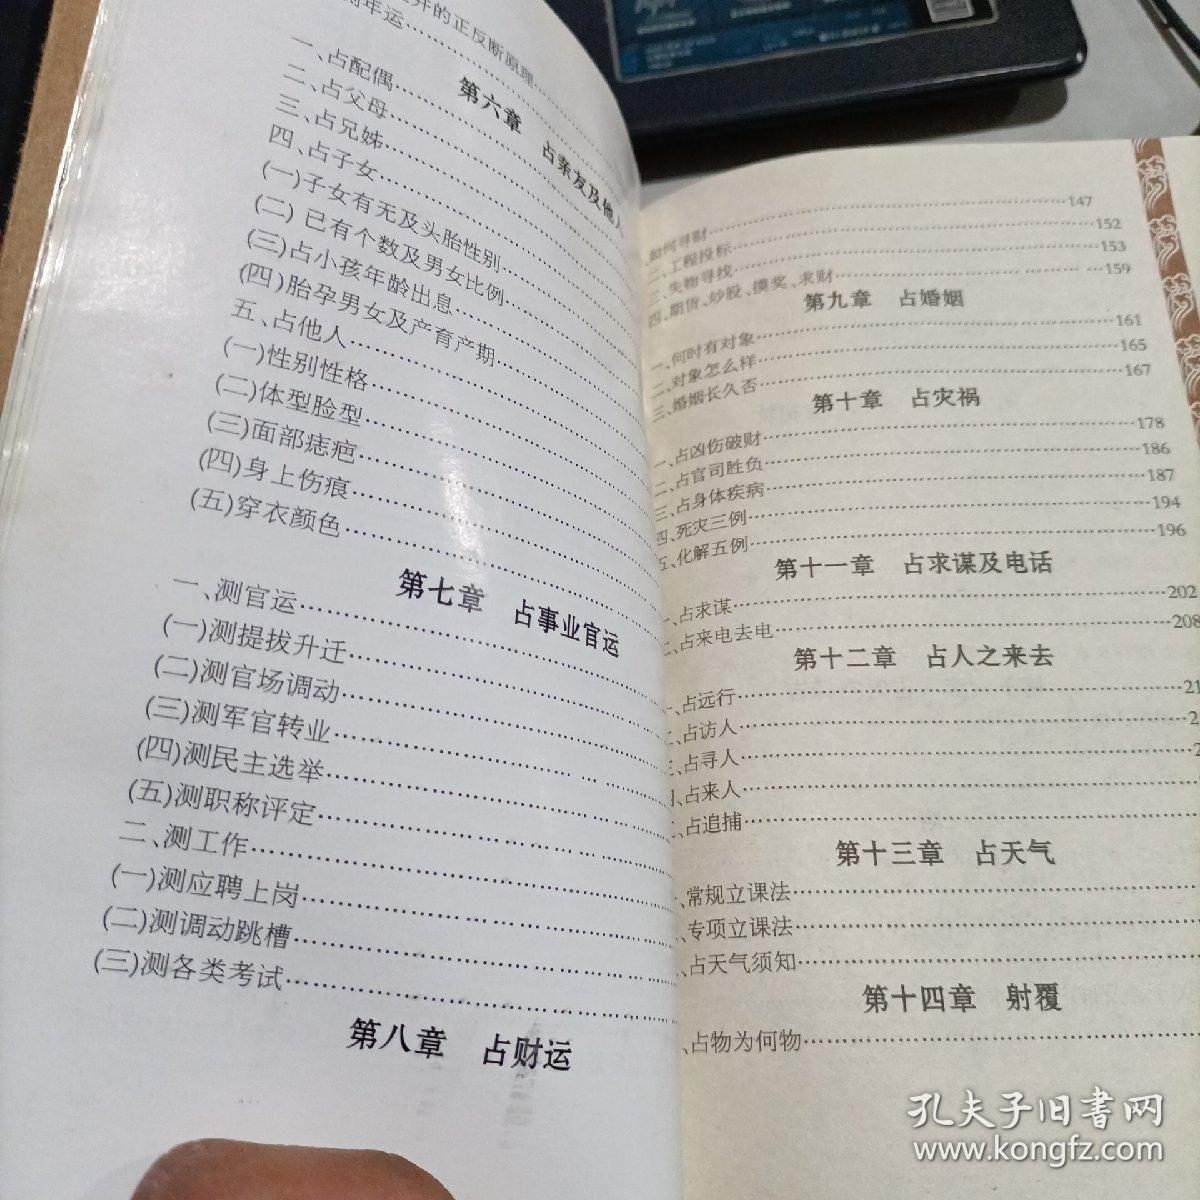 开的正反断原理
测年运
第六章 占亲友及他人
一、占配偶
二、占父母
三、占兄姊
四、占子女
(一)子女有无及头胎性别
(二)已有个数及男女比例
(三)占小孩年龄出息
(四)胎孕男女及产育产期
五、占他人
(一)性别性格
(二)体型脸型
(三)面部痣疤
(四)身上伤痕
(五)穿衣颜色
第七章 占事业官运
一、测官运
(一)测提拔升迁
(二)测官场调动
(三)测军官转业
(四)测民主选举
(五)测职称评定
二、测工作
(一)测应聘上岗
(二)测调动跳槽
(三)测各类考试
第八章 占财运
如何寻财 147
二、工程投标 152
三、失物寻找 153
四、期货、炒股、摸奖、求财 159
第九章 占婚姻
一、何时有对象 161
二、对象怎么样 165
三、婚姻长久否 167
第十章 占灾祸
一、占凶伤破财 178
二、占官司胜负 186
三、占身体疾病 187
四、死灾三例 194
五、化解五例 196
第十一章 占求谋及电话
、占求谋 202
、占来电去电 208
第十二章 占人之来去
、占远行 21
、占访人 2
、占寻人 2
、占来人
、占追捕
第十三章 占天气
、常规立课法
、专项立课法
、占天气须知
第十四章 射覆
、占物为何物
孔夫子旧书网
www.kongfz.com